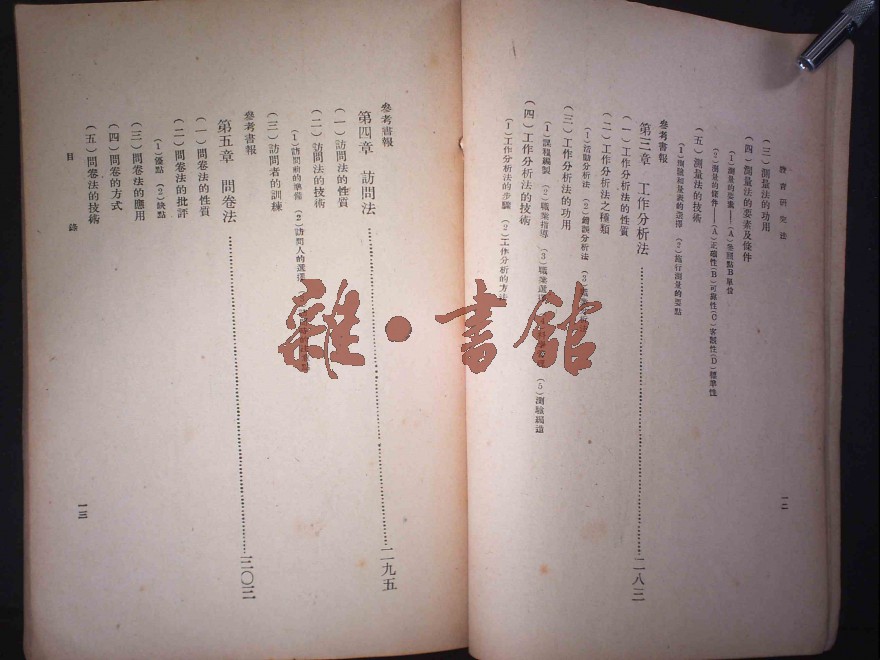 教育研究法
(三)測量法的功用
(四)測量法的要素及條件
(1)測量的要素——(A)參照點B單位
(2)測量的條件——(A)正確性(B)可靠性(C)客觀性(D)標準性
(五)測量法的技術
(1)測驗和量表的選擇 (2)施行測量的要點
參考書報
第三章 工作分析法 二八三
(一)工作分析法的性質
(二)工作分析法之種類
(1)活動分析法 (2)錯誤分析法 (3
(三)工作分析法的功用
(1)課程編製 (2)職業指導 (3)職業選 (5)測驗編造
(四)工作分析法的技術
(1)工作分析法的步驟 (2)工作分析的方法
一二
參考書報
第四章 訪問法 二九五
(一)訪問法的性質
(二)訪問法的技術
(1)訪問前的準備 (2)訪問人的選擇
(三)訪問者的訓練
參考書報
第五章 問卷法 三〇三
(一)問卷法的性質
(二)問卷法的批評
(1)優點 (2)缺點
(三)問卷法的應用
(四)問卷的方式
(五)問卷法的技術
目錄
一三
雜·書館